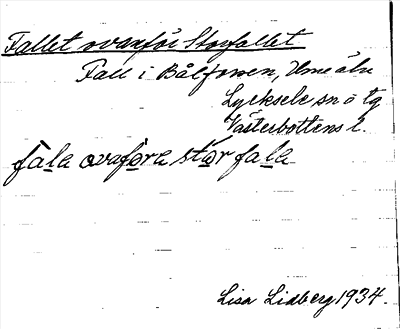 Fallet ovanför Storfallet
Fall i Bålforsen, Ume älv
Lycksele sn o tg
Västerbottens l.
fala ovafora stor fala
Lisa Lidberg 1934.